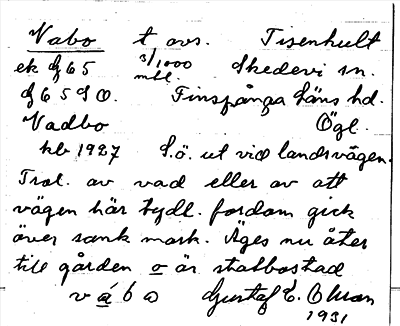 Vabo t avs. Tisenhult
ek bl 65 3/1000 mtl. Skedevi sn.
bl 65 SO. Finspånga läns hd.
Vadbo Ögl.
kb 1927 S.ö. ut vid landsvägen.
Trol. av vad eller av att
vägen här tydl. fordom gick
över sank mark. Äges nu åter
till gården o är statbostad
v á b o Gustaf E. Olson
1931